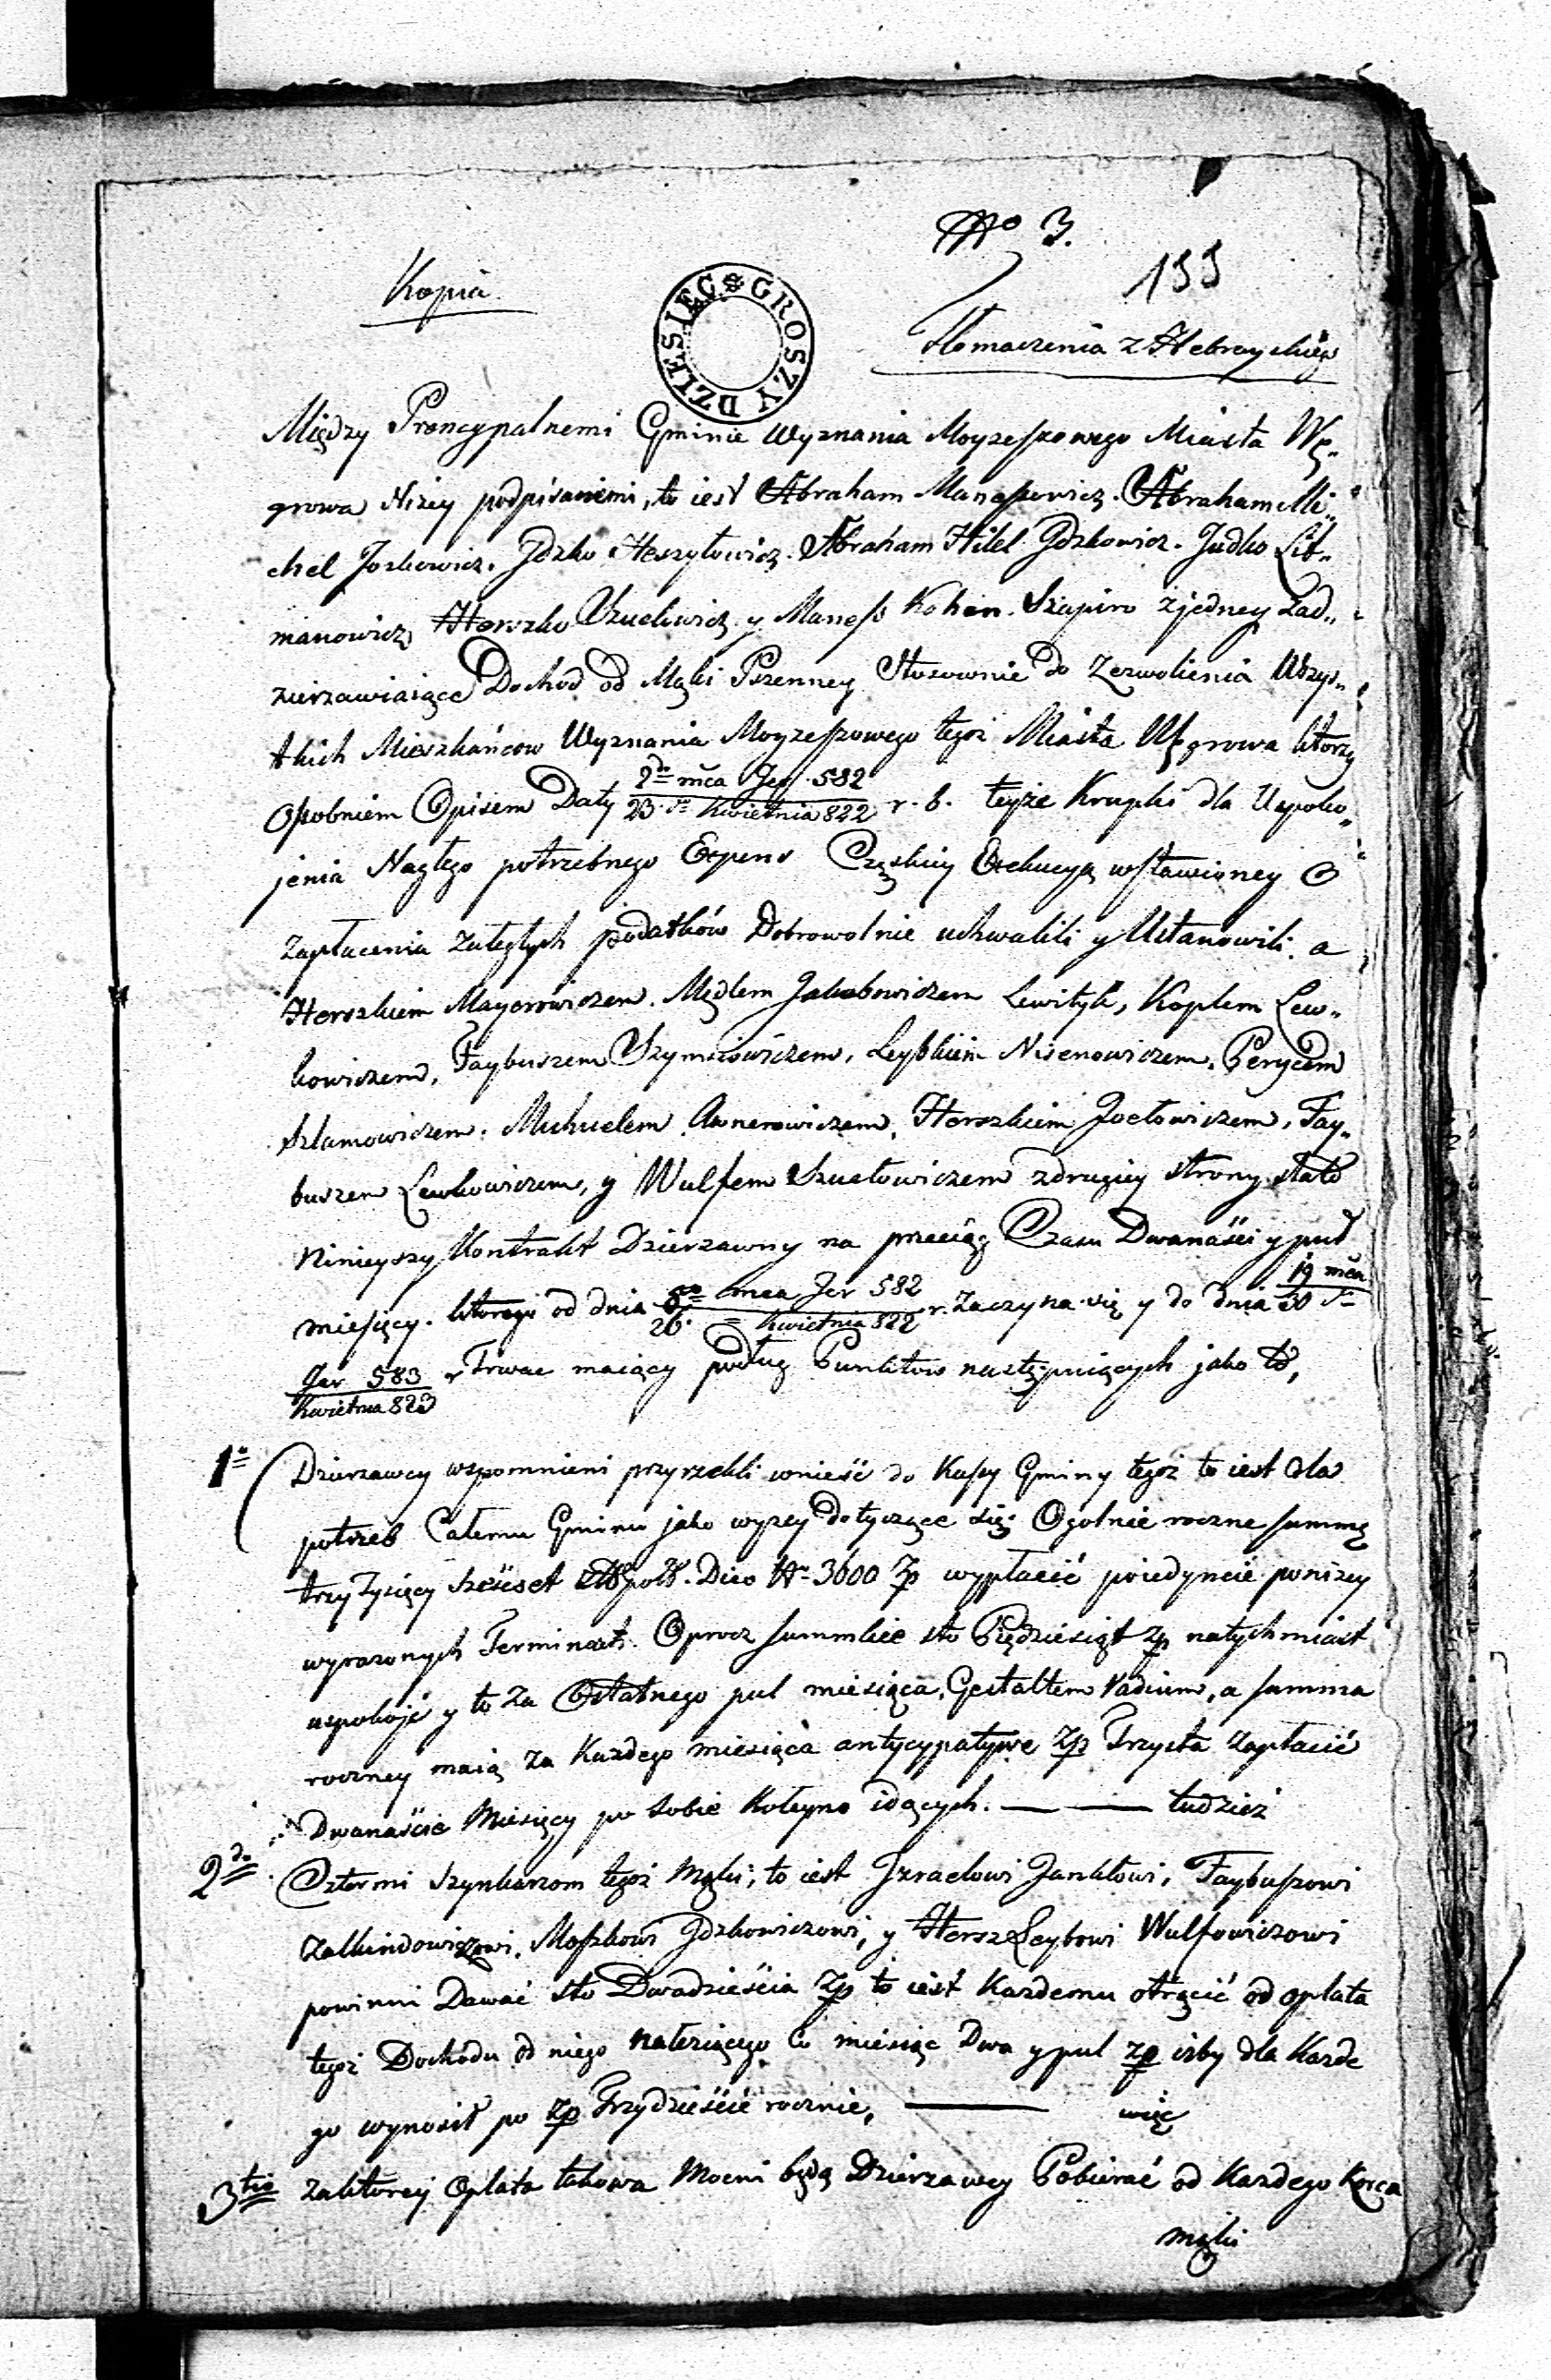 No 3.
155
Kopia
GROSZY DZIESIĘC
Tłomaczenia z Hebrayskiego
Między Pryncypalnemi Gminie Wyznania Moyzeszowego Miasta Wę„
growa Niżey podpisanemi, to iest Abraham Manaszewicz. Abraham Mi„
chel Joskowicz. Jdzko Heszyłowicz. Abraham Hilel Jdzkowicz. Judko Lib„
manowicz Herszko Szuchwicz y Maness Kohen. Szapiro z jedney Zad„
zierzawiaiące Dochod od Mąki Pszenney Stosownie do Zezwolienia Wszys„
tkich Mieszkańcow Wyznania Moyzeszowego tegoz Miasta Węgrowa ktorzy
Osobniem Opisem Daty 2do mca Jer 582 / 23 Kwietnia 822 r. b. teyże Krupki dla Uspoko„
jenia Nagłego potrzebnego Expens Cząskiy Exekucyą wstawioney O
Zapłacenia Zaległych podatków Dobrowolnie uchwalili y Ustanowili. a
Herszkiem Mayorowiczem. Mędlem Jakubowiczem Lewityk, Koplem Lew„
kowiczem, Faybuszem Szymsiowiczem, Leybkiem Nisenowiczem, Perycem
Szlamowiczem. Michuelem Awnerowiczem, Herszkiem Joełowiczem, Fay„
buszem Lewkowiczem, y Wulfem Szuełowiczem z drugiey strony. stało
Niniejszy Kontrakt Dzierzawny na przeciąg Czasu Dwanaści y puł
miesięcy. ktorego od dnia mca Jer 582 / 26. Kwietnia 822 r. Zaczyna się y do dnia 19 mca / 30
Jer 583 / Kwietnia 823 r Trwac maiący podług Punktow następuiących jako to,
1o Dzierzawcy wspomnieni przyrzekli wnieść do Kassy Gminy tegoz to iest dla
potrzeb Całemu Gminu jako wyzey dotyczące się. Ogolnie roczne summę
trzy Tysięcy Szesset Złł polł. Dico No 3600 Zp wypłacić poiedyncie poniżey
wyrazonych Terminach. Oprocz summkie sto Piędziesiąt zp natychmiast
uspokoić y to Za Ostatnego puł miesiąca. Gestaltem Vadium, a summa
roczney maią za Kazdego miesiąca antycypatywe Zp Trzysta Zapłacić
Dwanaście Miesięcy po sobie Koleyno idących. — — tudzież
2do Cztermi Szynkarzom tegoż Mąki, to iest Jzraelowi Jankłowi, Faybuszowi
Zalkindowiczowi. Moszkowi Jdzkowiczowi, y Hersz Leybowi Wulfowiczowi
powinni Dawać sto Dwadzieścia Zp to iest Kazdemu otrącić od opłata
tegoż Dochodu od niego należiącego Co miesiąc Dwa y puł zp izby dla Kazde
go wynosił po Zp Trzydzieście rocznie, — więc
3tio Zaktorey Opłata takowa Mocni będą Dzierzawcy Pobierać od Kazdego Korca
mąki